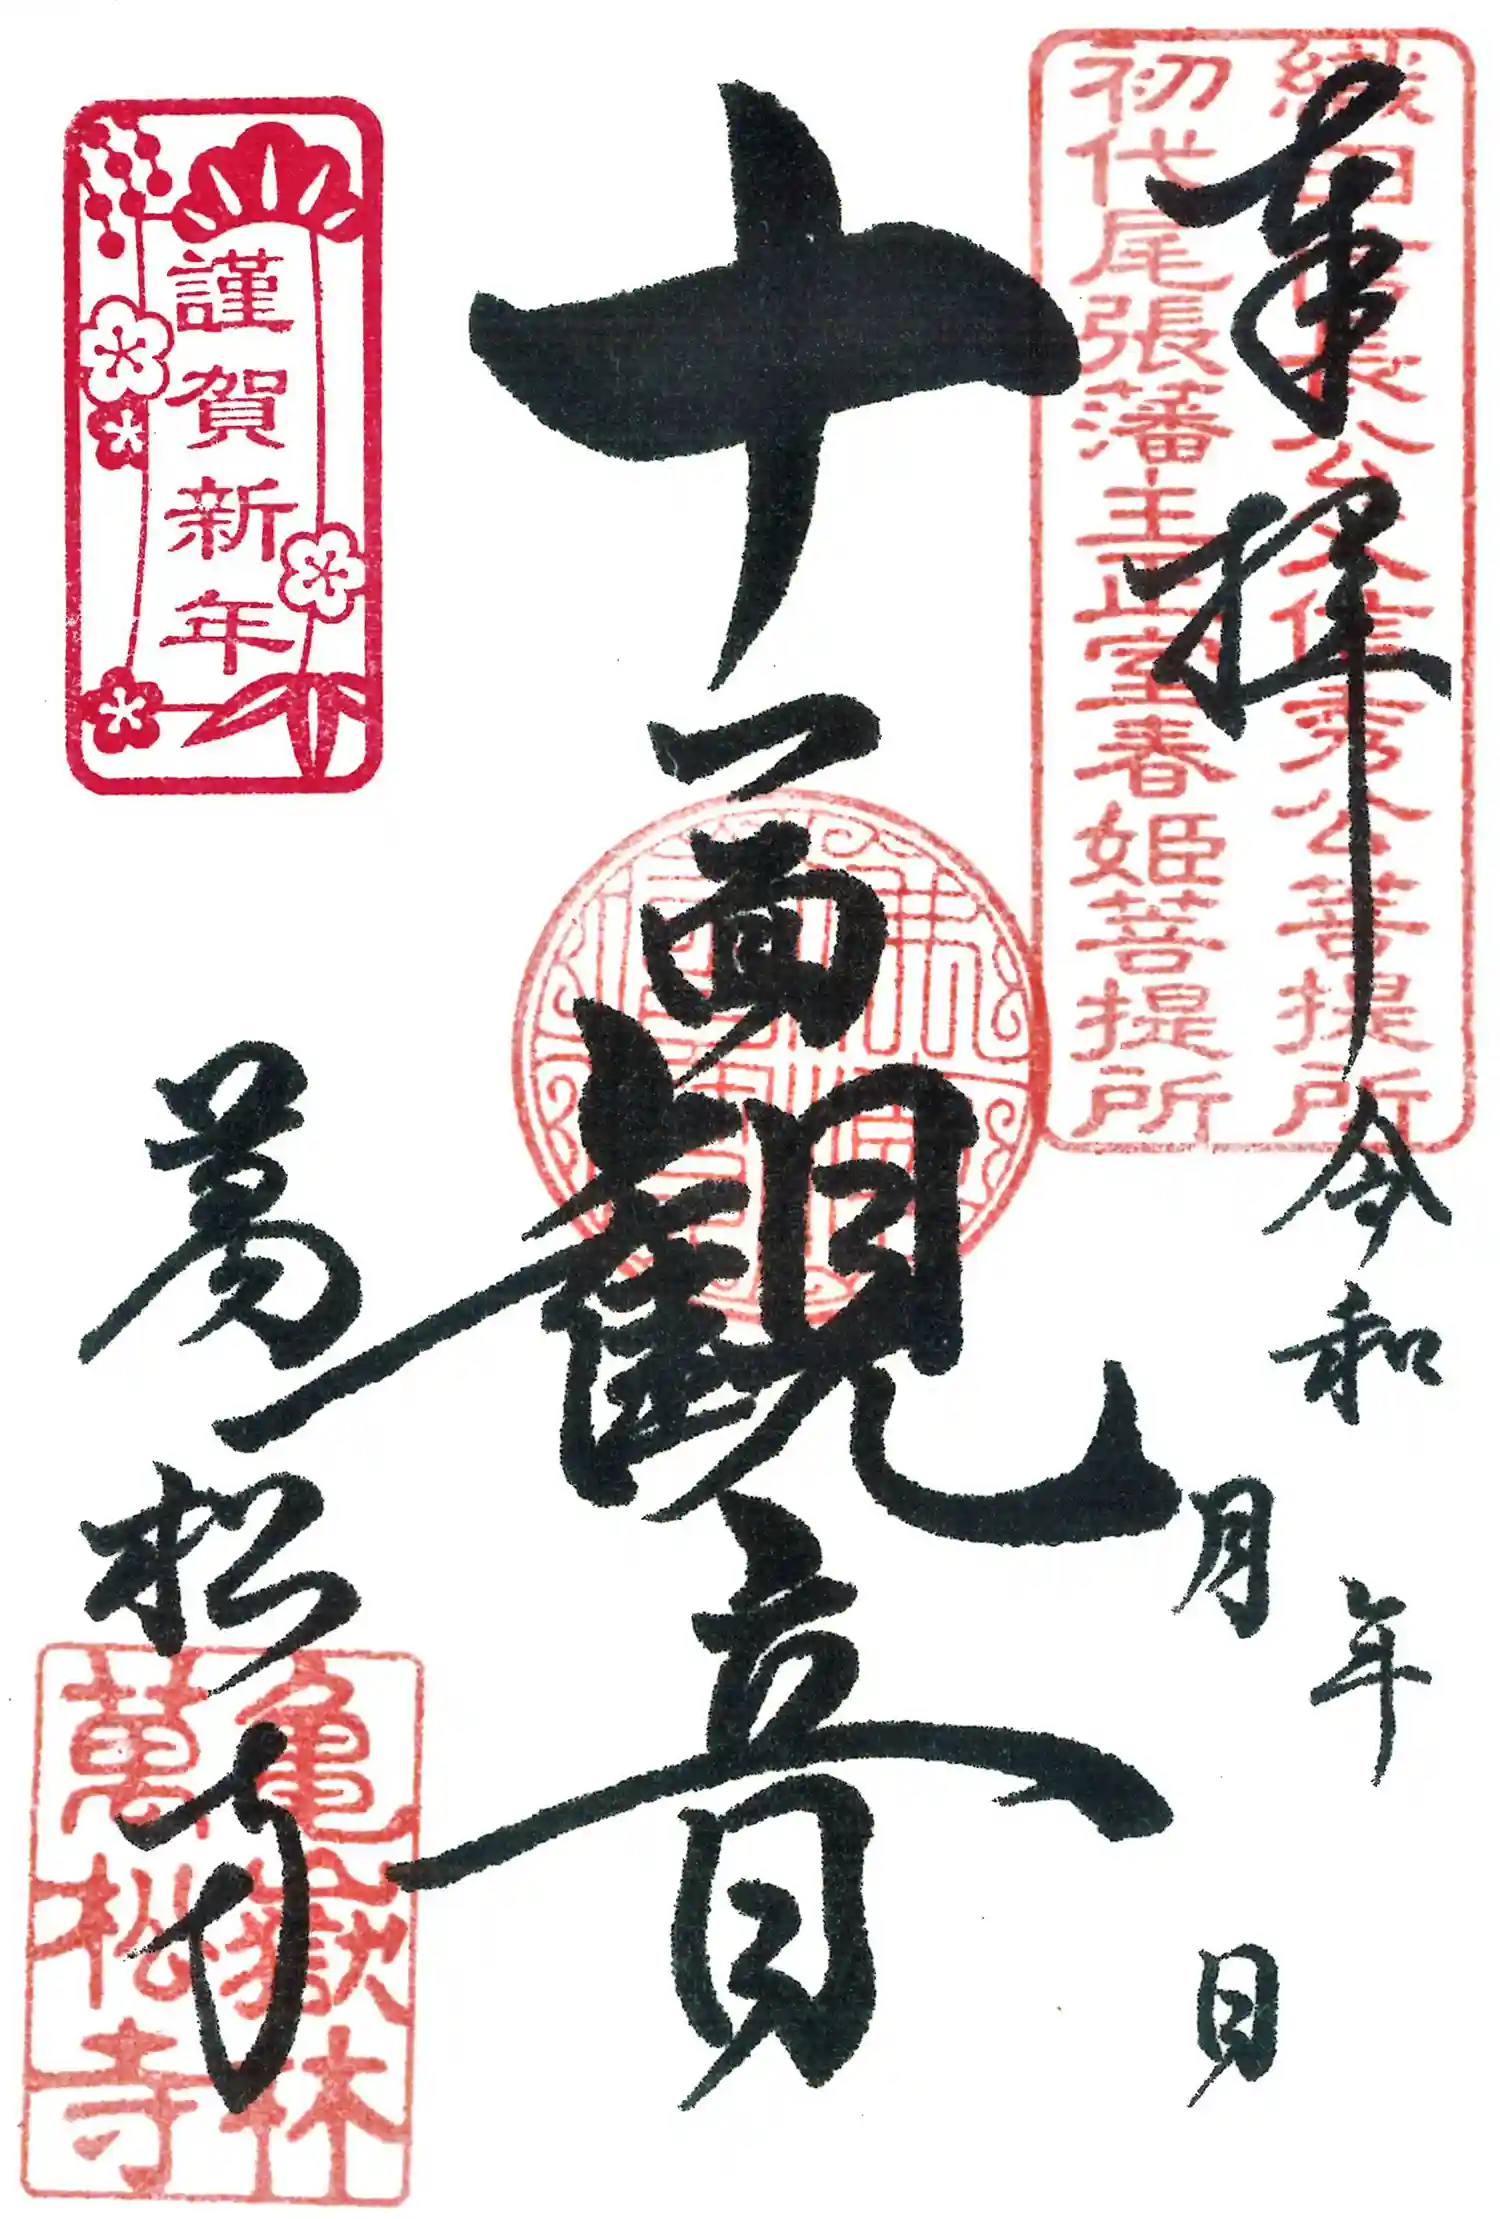 織田信長公父信秀公菩提所
初代尾張藩主正室春姫菩提所
奉拝
令和 年
月 日
十一面観音
謹賀新年
萬松寺
亀嶽林
萬松寺